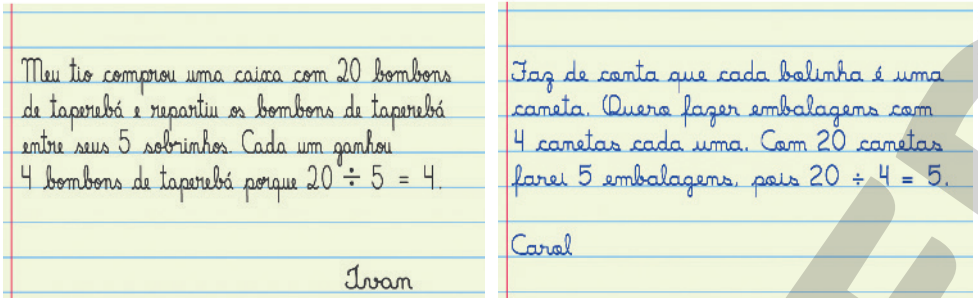 Meu tio comprou uma caixa com 20 bombons
de taperebá e repartiu os bombons de taperebá
entre seus 5 sobrinhos. Cada um ganhou
4 bombons de taperebá porque 20 ÷ 5 = 4.
Ivan
Faz de conta que cada bolinha é uma
caneta. Quero fazer embalagens com
4 canetas cada uma. Com 20 canetas
farei 5 embalagens, pois 20 ÷ 4 = 5.
Carol